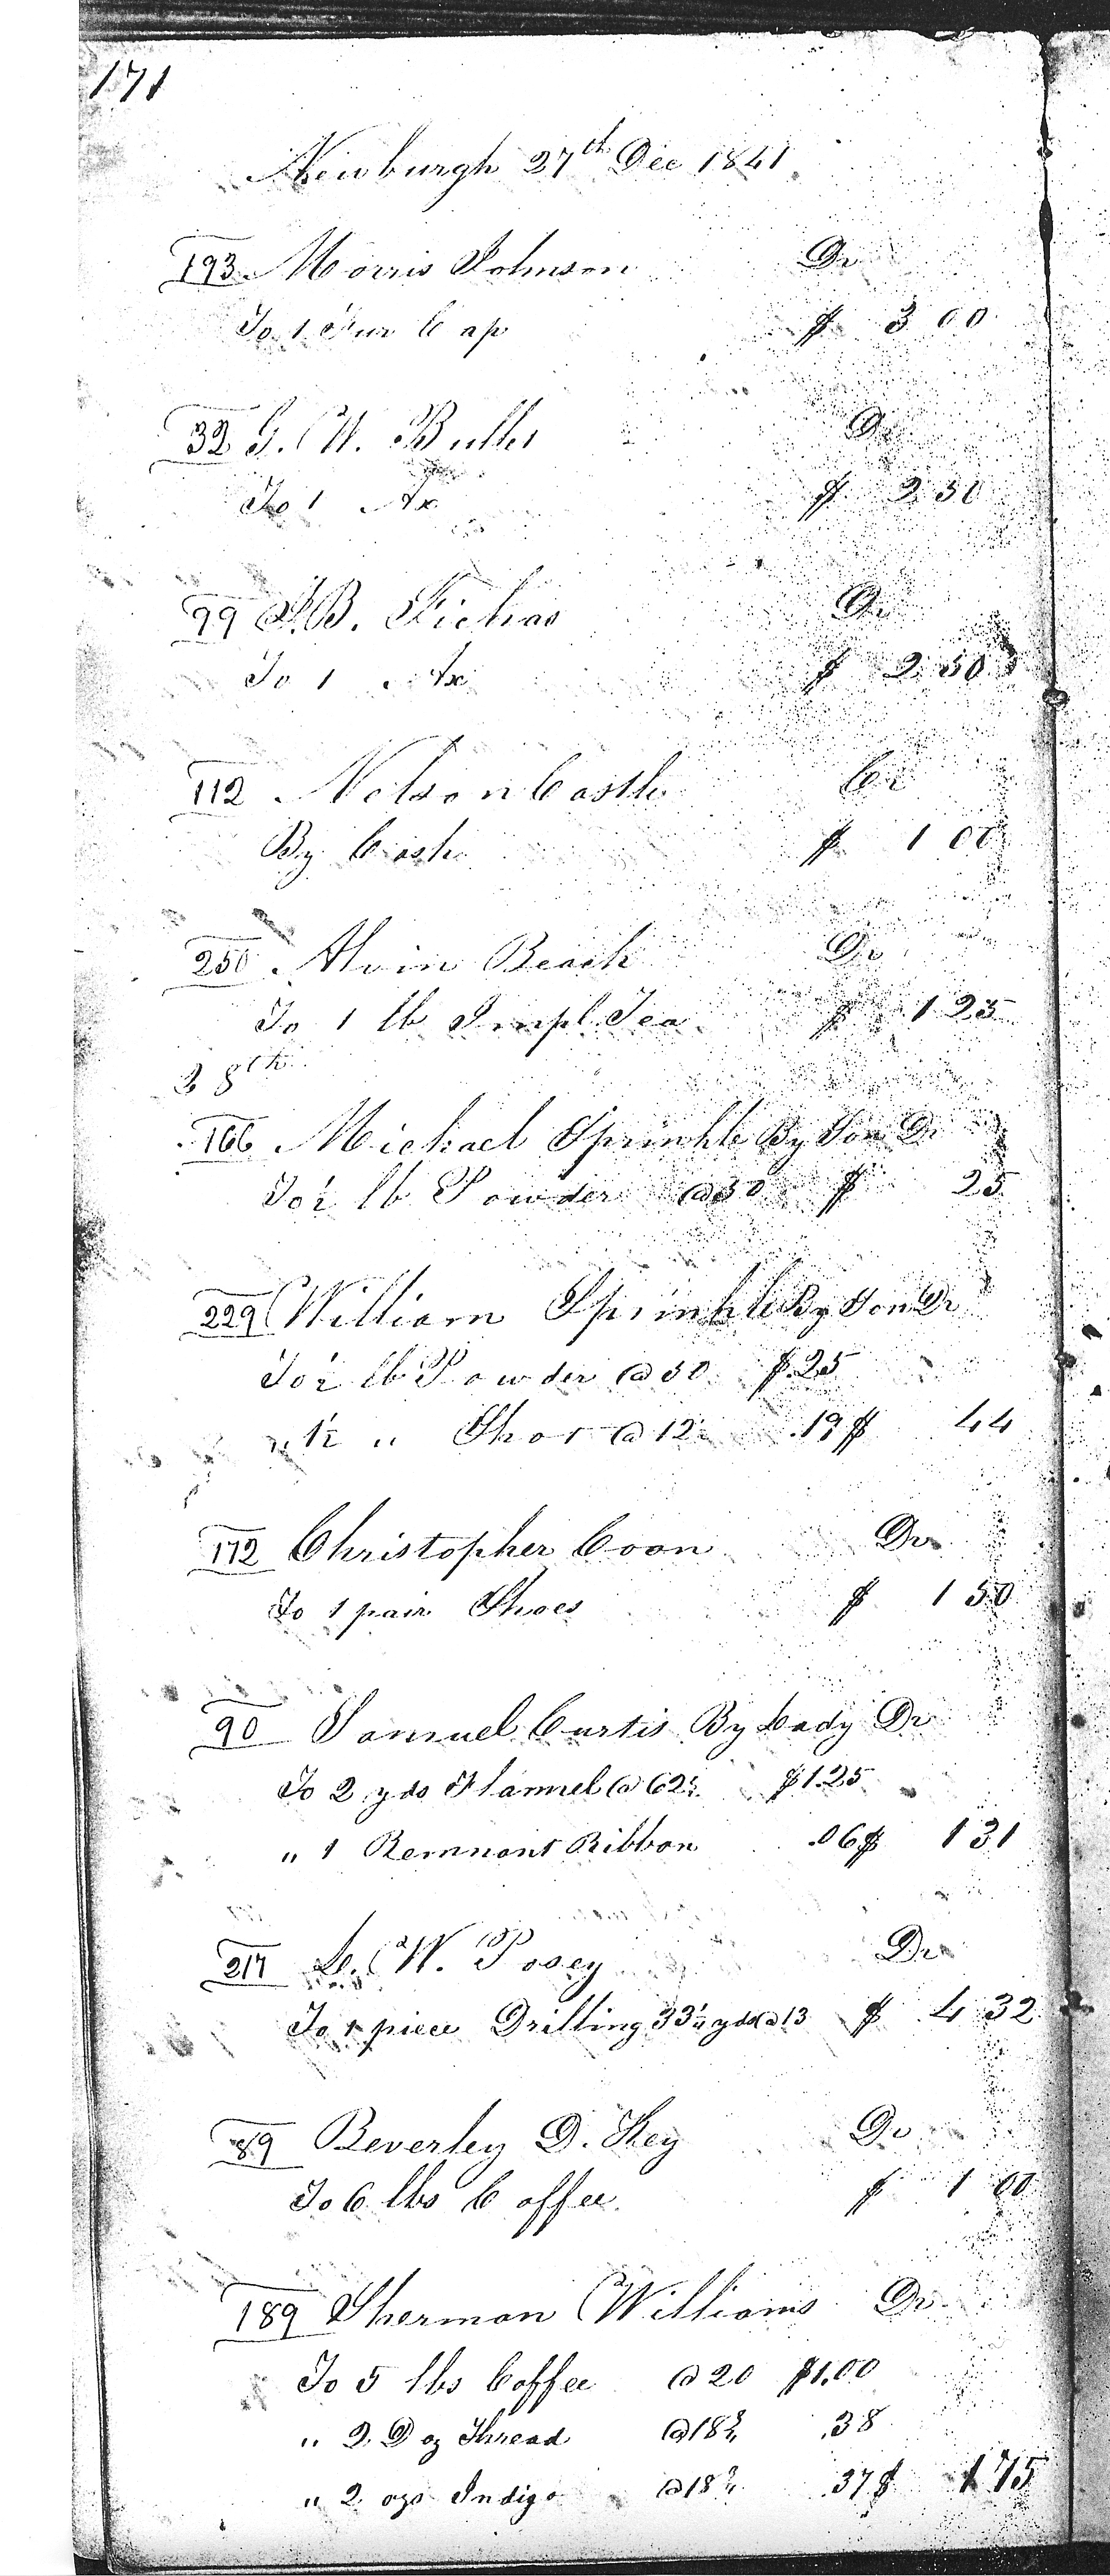 171
Newburgh 27th Dec 1841
193 Morris Johnson Dr
To 1 Fur Cap $ 3 00
32 G. W. Butler Dr
To 1 Ax $ 2 50
99 J.B. Fickas Dr
To 1 Ax $ 2 50
112 Nelson Castle Cr
By Cash $ 1 00
250 Alvin Beach Dr
To 1 lb Impl. Tea $ 1 25
28th
166 Michael Sprinkle By Son Dr
To ½ lb Powder @50 $ 25
229 William Sprinkle By Son Dr
To ½ lb Powder @50 $.25
" 1½ " Shot @12½ .19 $ 44
172 Christopher Coon Dr
To 1 pair Shoes $ 1 50
90 Samuel Curtis By Lady Dr
To 2 yds Flannel @62½ $1.25
" 1 Remnant Ribbon .06 $ 1 31
217 L. W. Posey Dr
To 1 piece Drilling 33¼ yds @13 $ 4 32
89 Beverley D. Key Dr
To 6 lbs Coffee $ 1 00
189 Sherman Williams Dr
To 5 lbs Coffee @20 $1.00
" 2 Doz Thread @18¾ .38
" 2 ozs Indigo @18¾ .37 $ 1 75